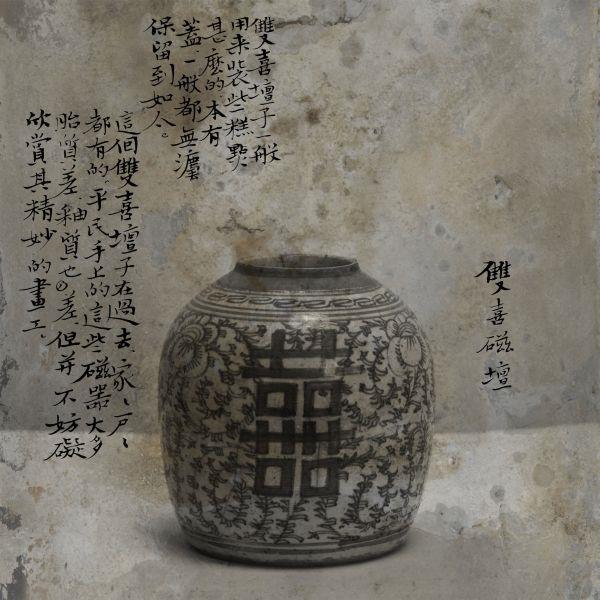 雙喜磁壇
雙喜壇子一般
用来裝些糕點
甚麽的.本有
蓋.一般都無灋
保留到如今。
這個雙喜壇子在過去、家、戶、
都有的。平民手上的這些磁器大多
胎質差、釉質也差、但并不妨礙
欣賞其精妙的畫工、
囍